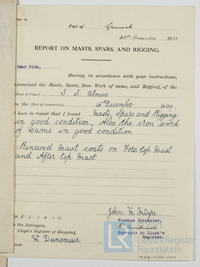 Port of Greenock
REPORT ON MASTS, SPARS, AND RIGGING.
Dear Sirs,
Having, in accordance with your instructions,
examined the Masts, Spars, Iron Work of same, and Rigging, of the
S. S. Ulmus
on the 16 December
I have to report that I found Masts, Spars and Rigging
in good condition, Also the iron work
of same in good condition
Renewed mast coats on Fore top mast
and After top mast
John McIntyre
Foreman Carpenter.
Surveyor to Lloyd's
Register.
the Surveyors,
Lloyd's Register of Shipping.
W. Dunsmuir
Lloyd's Register
Foundation